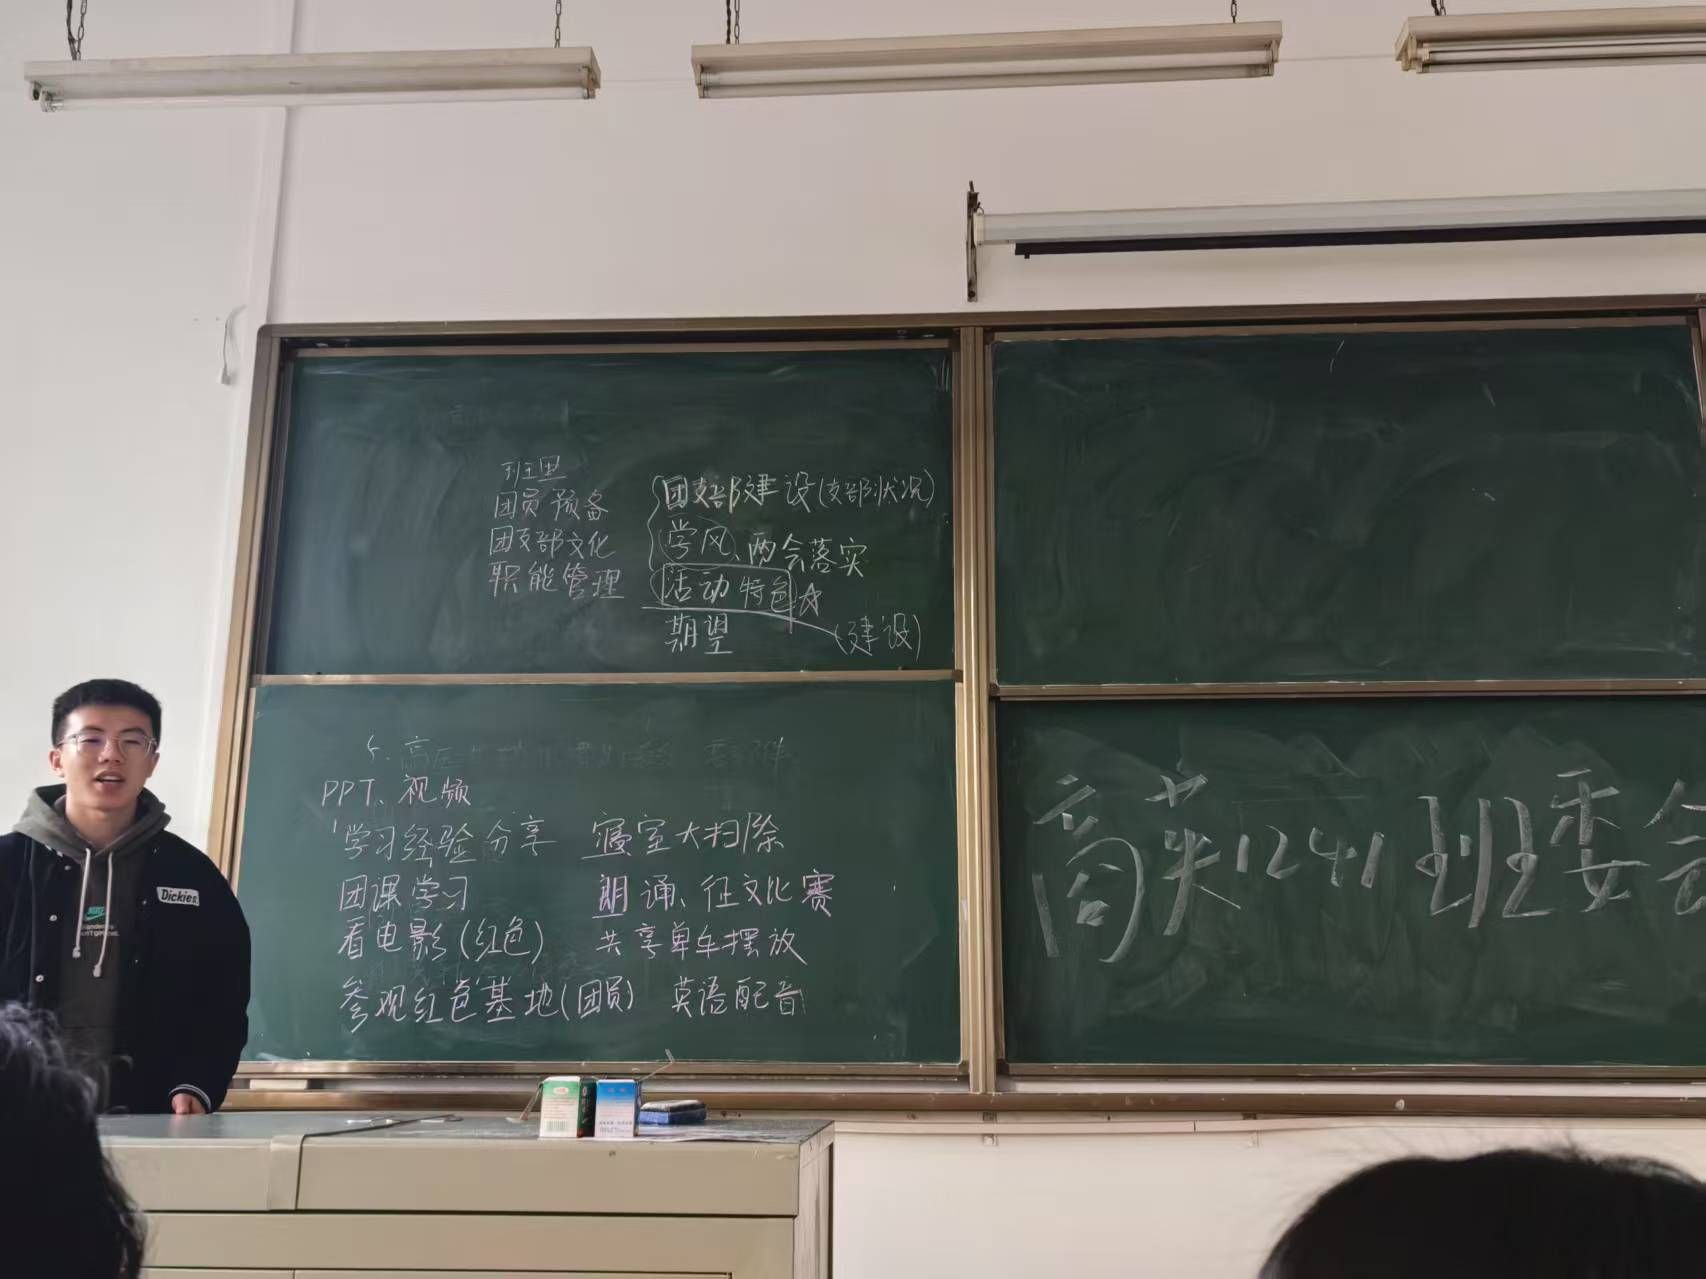 班里
团员预备
团支部文化
职能管理
团支部建设(支部状况)
学风、两会落实
活动特色☆
期望
(建设)
PPT、视频
学习经验分享 寝室大扫除
团课学习 朗诵、征文化赛
看电影(红色) 共享单车摆放
参观红色基地(团员) 英语配音
商英1241班委会
Dickies